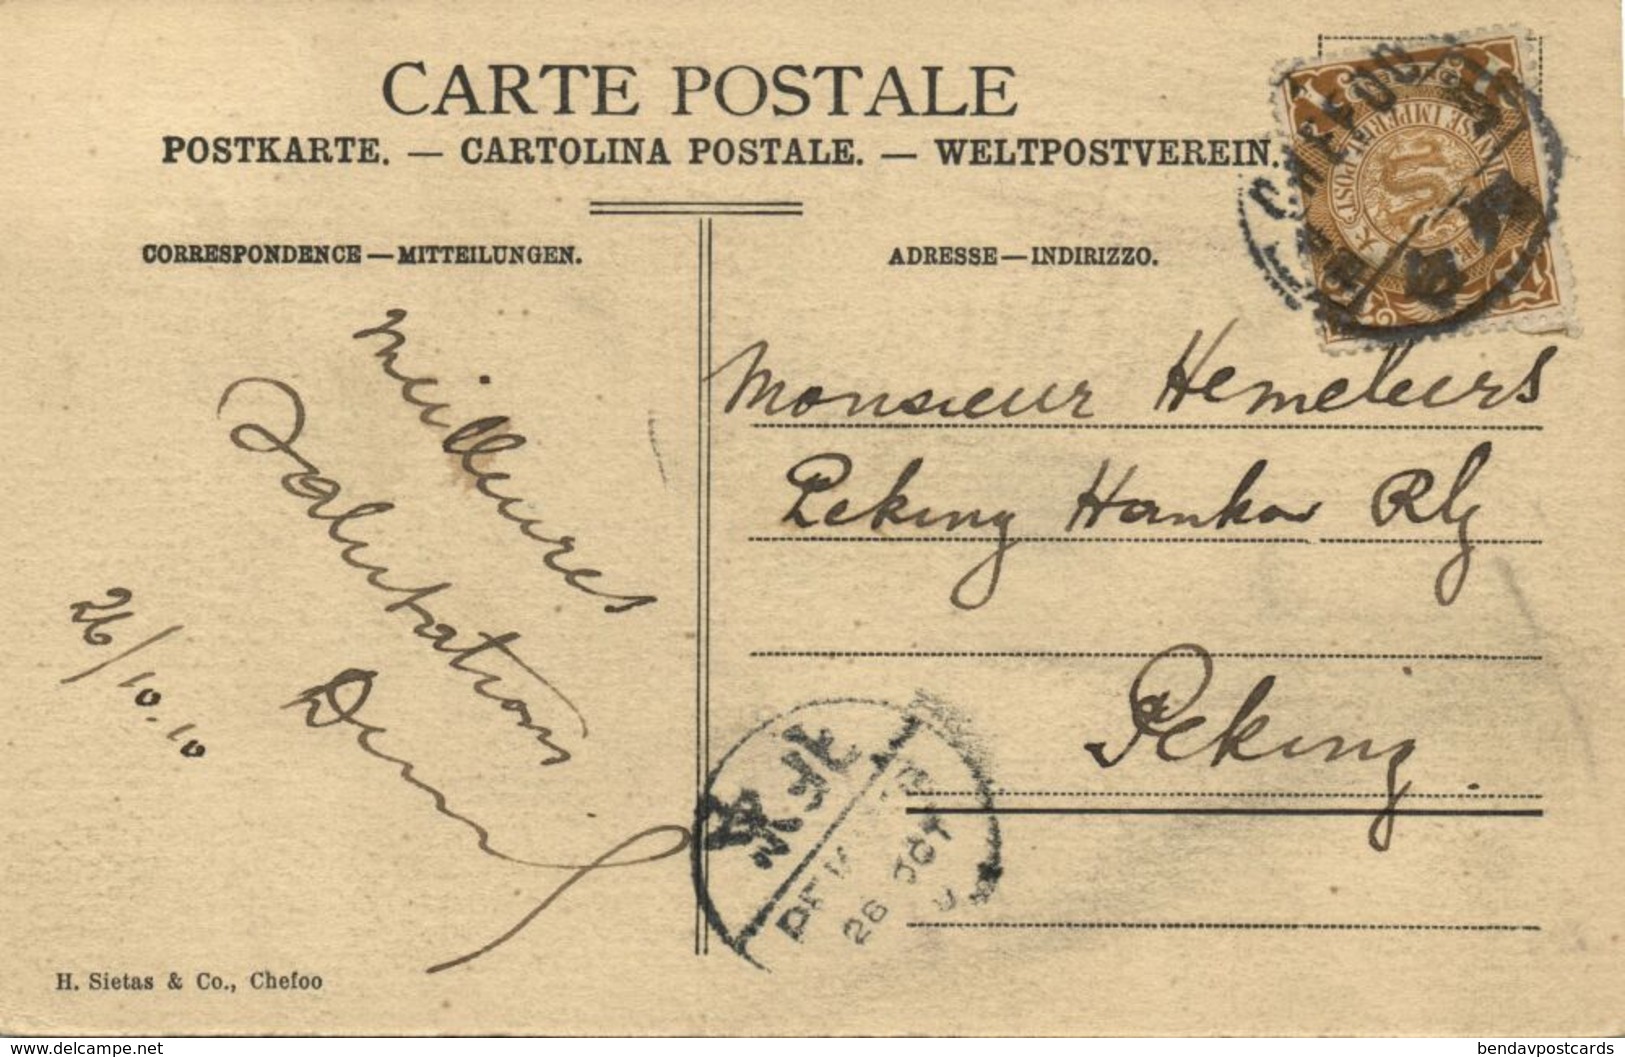 CARTE POSTALE
POSTKARTE. — CARTOLINA POSTALE. — WELTPOSTVEREIN.
CORRESPONDENCE — MITTEILUNGEN.
ADRESSE — INDIRIZZO.
CHEFOO
Meilleures
Salutations
26/10.10
Monsieur Hemeleers
Peking Hankow Rly
Peking.
北京
26 OCT
H. Sietas & Co., Chefoo
www.delcampe.net
bendavpostcards